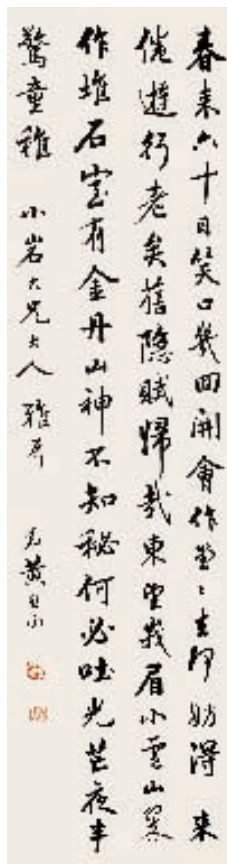 春来六十日笑口幾回開會作堂〻去何妨得〻来
倦遊行老矣舊隱賦歸哉東望峩眉小雲山翠
作堆石室有金丹山神不知秘何必吐光芒夜半
驚童稚 小岩大兄大人雅屬 弟黄自元